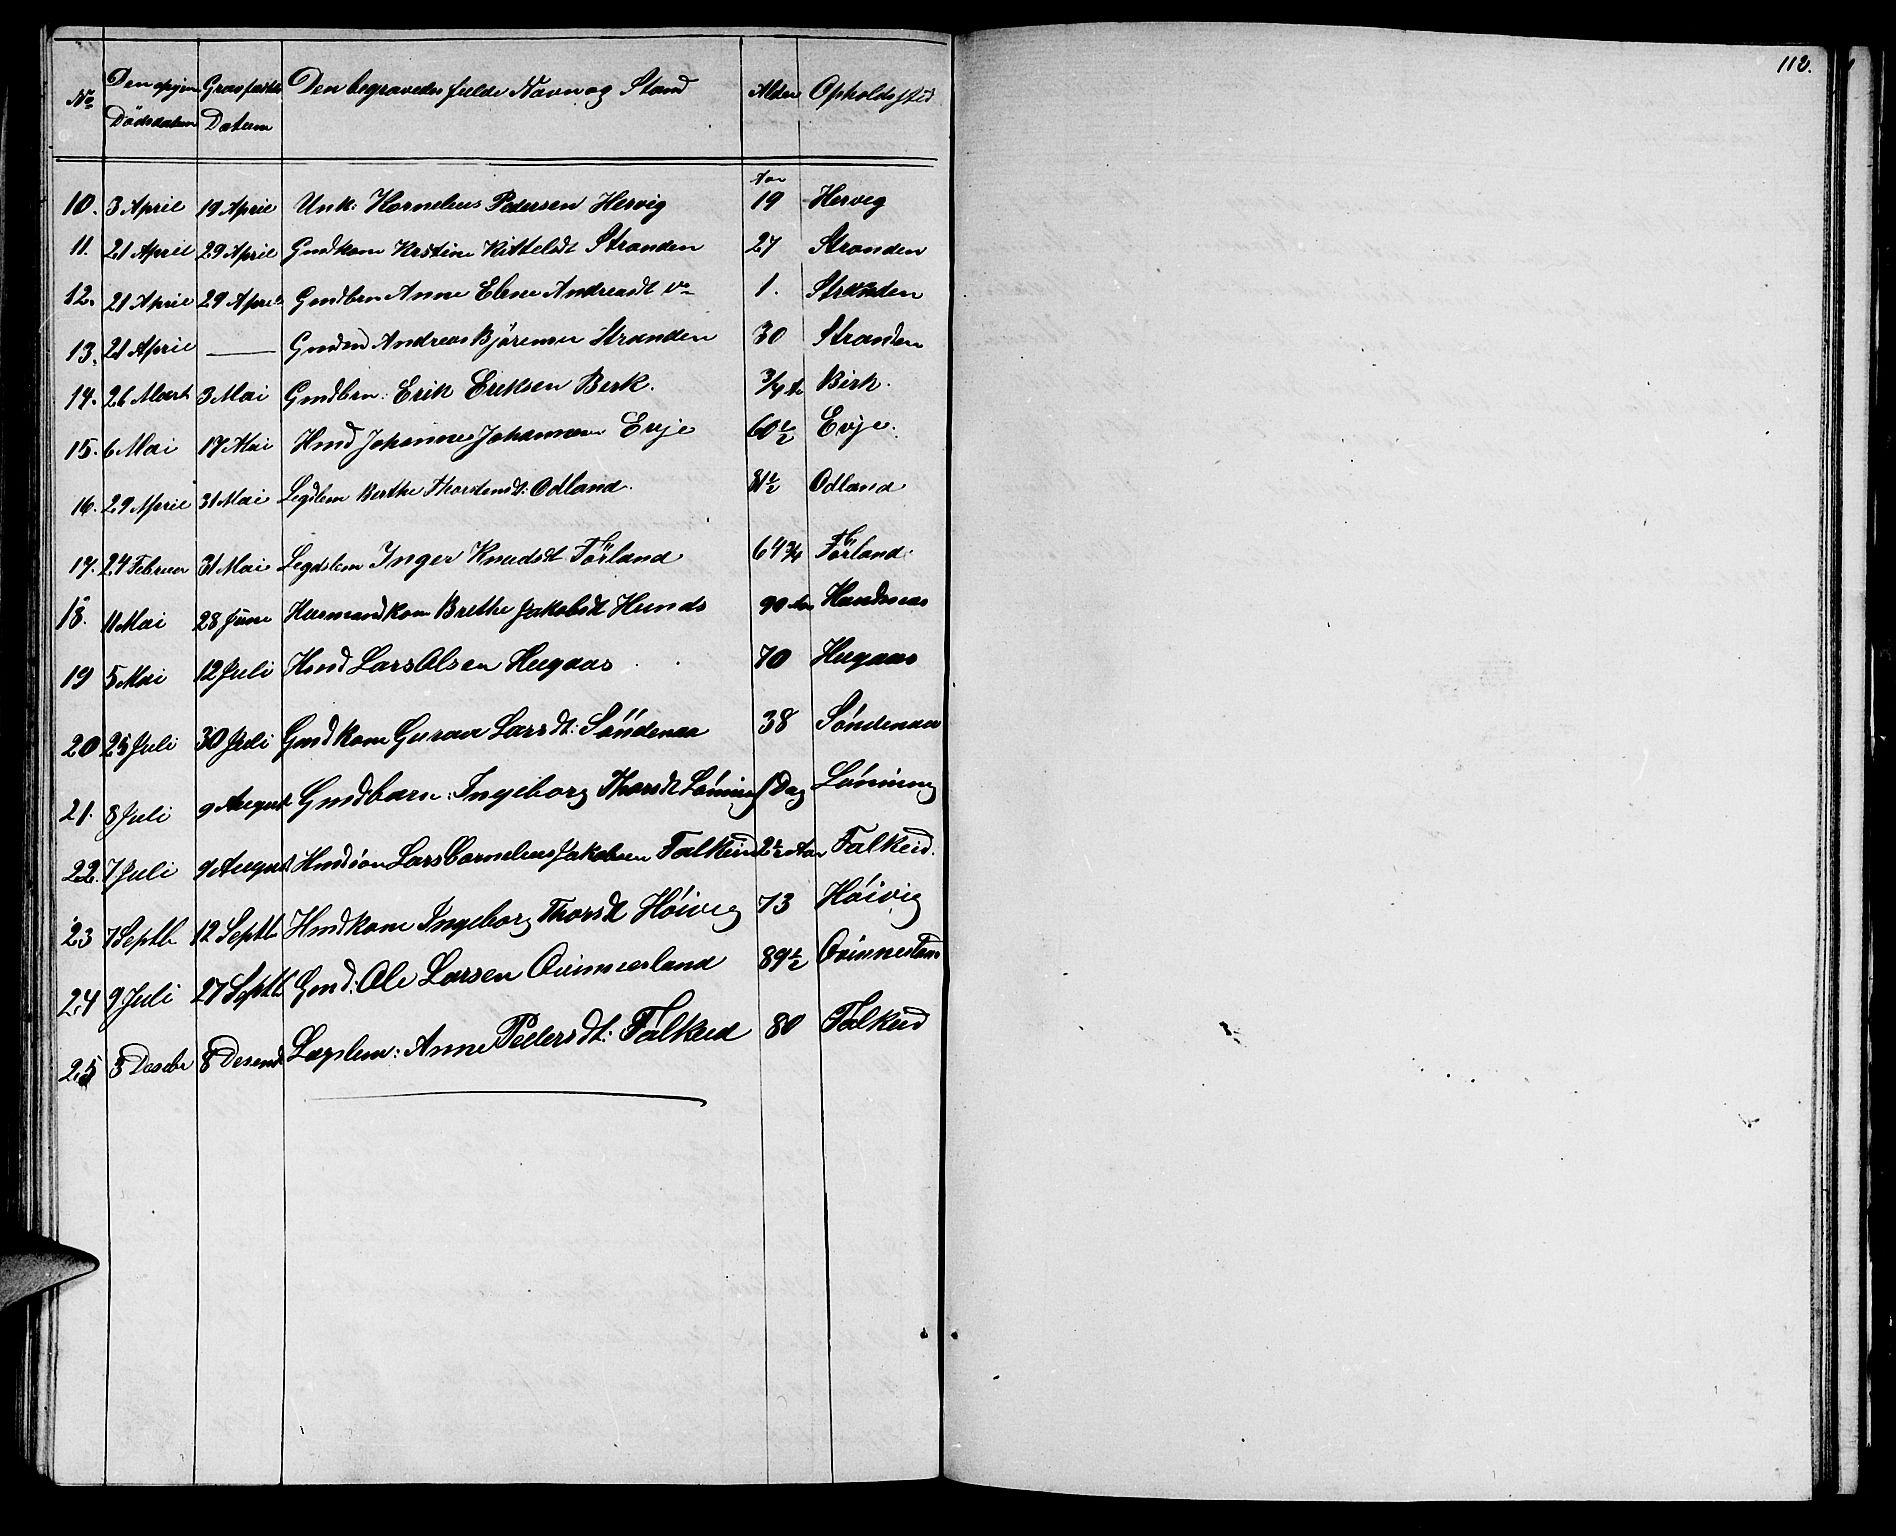 112.
No Den opgivne Dödsdatum Gravfæstels Datum Den begravedes fulde Navn og Stand Alder Opholdssted
10. 3 April 19 April Unk: Kornelius Pedersen Hervig Aar 19 Herveg
11. 21 April 29 April Gmdkone Kristine Kitteldt Stranden 27 Stranden
12. 21 April 29 April Gmdbrn Anne Elene Andreasdt 1. Stranden
13. 21 April — Gmd Andreas Stranden 30 Stranden
14. 26 Marts 3 Mai Gmdbrn: Erik Eriksen Berk. 3/4 Birk.
15. 6 Mai 17 Mai Hmd Johannes Johannesen Evje 60 1/2 Evje.
16. 29 April 31 Mai Legdlem Berthe Thorstensdt: Odland. 31 1/2 Odland
17. 24 Februar 31 Mai Legdslem Inger Knudsdt Förland 64 3/4 Förland.
18. 11 Mai 28 Juni Husmandkone Brethe Jakobsdt Hunds 90 Aar
19 5 Mai 12 Juli Hmd Lars Olsen Hugaas 70 Hugaas
20 25 Juli 30 Juli Gmdkone Guroe Larsdt: Söndenaa 38 Söndenaa
21. 8 Juli 9 August Gmdbarn: Ingeborg Thorsdt Lönning 1 Dag Lönning
22. 7 Juli 9 August Hmdsön Lars Cornelius Jakobsen Falkeid 2 1/2 Aar Falkeid.
23 7 Septb 12 Septb Hmdkone Ingeborg Thorsdt Höivig 73 Höivig
24 9 Juli 27 Septb Gmd: Ole Larsen Qvinnesland 89 1/2 Qvinnesland
25 3 Desebr 8 Desemb Lægslem: Anne Pedersdt: Falkeid 80 Falkeid